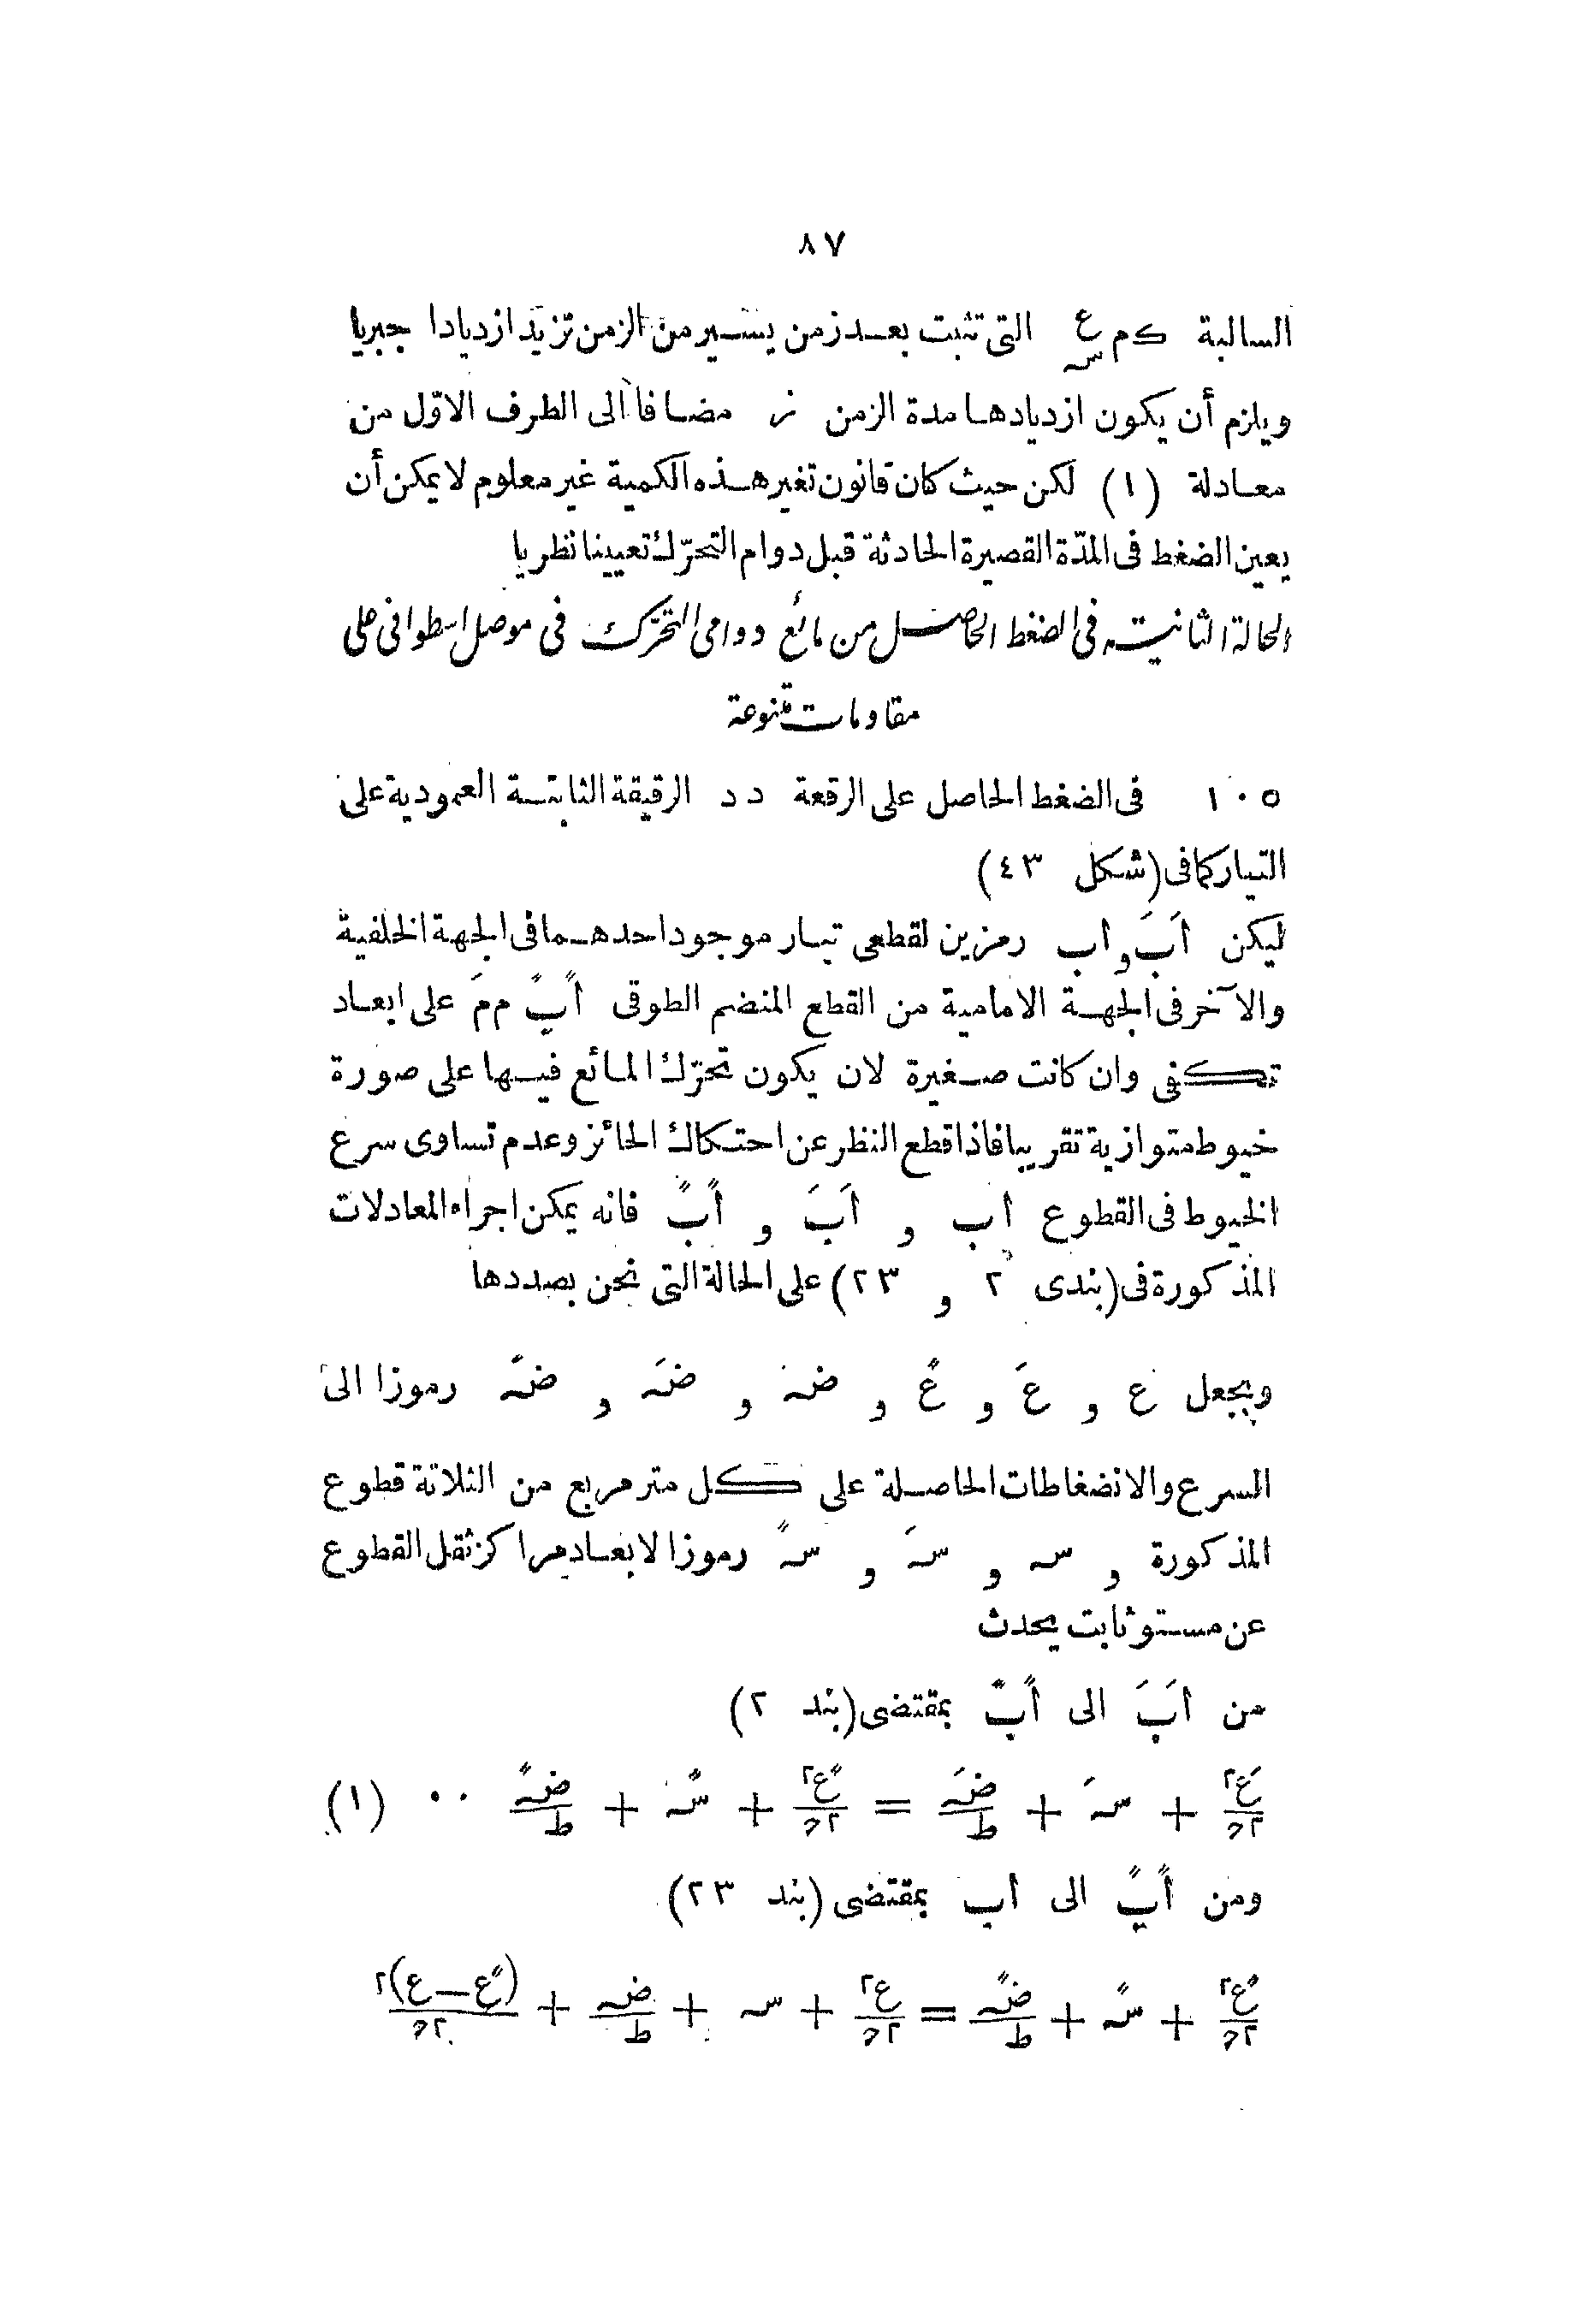 ٨٧
السالبة ك م ع/س التى تثبت بعد زمن يسير من الزمن تزيد ازديادا جبريا
ويلزم أن يكون ازديادها مدة الزمن ز مضافا الى الطرف الاوّل من
معادلة (١) لكن حيث كان قانون تغير هذه الكمية غير معلوم لا يمكن أن
يعين الضغط فى المدّة القصيرة الحادثة قبل دوام التحرّك تعيينا نظريا
الحالة الثانية فى الضغط الحاصل من مائع دوامى التحرّك فى موصل اسطوانى على
مقاومات متنوعة
١٠٥ فى الضغط الحاصل على الرقعة د د الرقيقة الثابتة العمودية على
التيار كما فى (شكل ٤٣)
ليكن اَبَ و اب رمزين لقطعى تيار موجود احدهما فى الجهة الخلفية
والآخر فى الجهة الامامية من القطع المنضم الطوقى اًبً م مَ على ابعاد
تكفى وان كانت صغيرة لان يكون تحرّك المائع فيها على صورة
خيوط متوازية تقريبا فاذا قطع النظر عن احتكاك الحائز وعدم تساوى سرع
الخيوط فى القطوع اب و اَبَ و اًبً فانه يمكن اجراء المعادلات
المذكورة فى (بندى ٢ و ٢٣) على الحالة التى نحن بصددها
ويجعل ع و عَ و عً و ضہ و ضَہ و ضًہ رموزا الى
السرع والانضغاطات الحاصلة على كل متر مربع من الثلاثة قطوع
المذكورة و سہ و سَہ و سًہ رموزا لابعاد مراكز ثقل القطوع
عن مستو ثابت يحدث
من اَبَ الى اًبً بمقتضى (بند ٢)
عَ٢/٢ح + سَہ + ضَہ/ط = عً٢/٢ح + سًہ + ضًہ/ط ٠٠ (١)
ومن اًبً الى اب بمقتضى (بند ٢٣)
عً٢/٢ح + سًہ + ضًہ/ط = ع٢/٢ح + سہ + ضہ/ط + (عً−ع)٢/٢ح